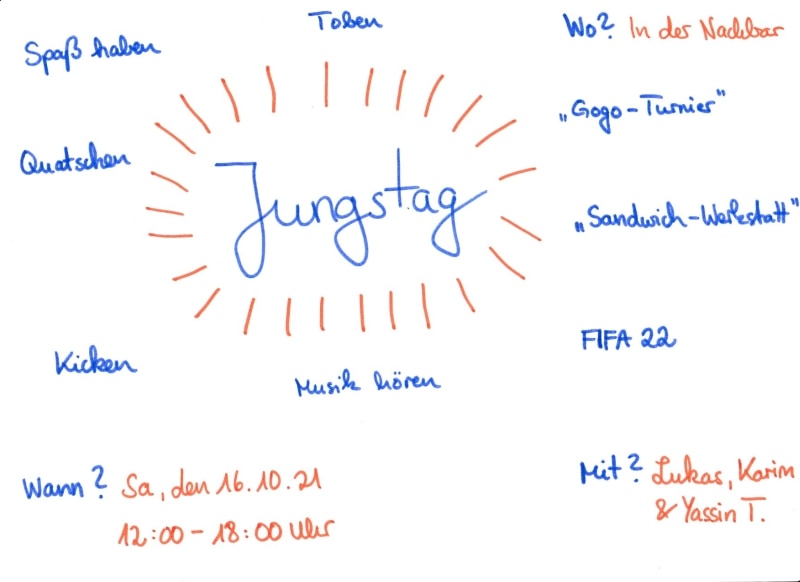 Toben
Spaß haben
Wo? In der Nachbar
„Gogo-Turnier"
Quatschen
Jungstag
„Sandwich-Werkstatt"
FIFA 22
Kicken
Musik hören
Wann? Sa, den 16.10.21
12:00 - 18:00 Uhr
Mit? Lukas, Karim
& Yassin T.